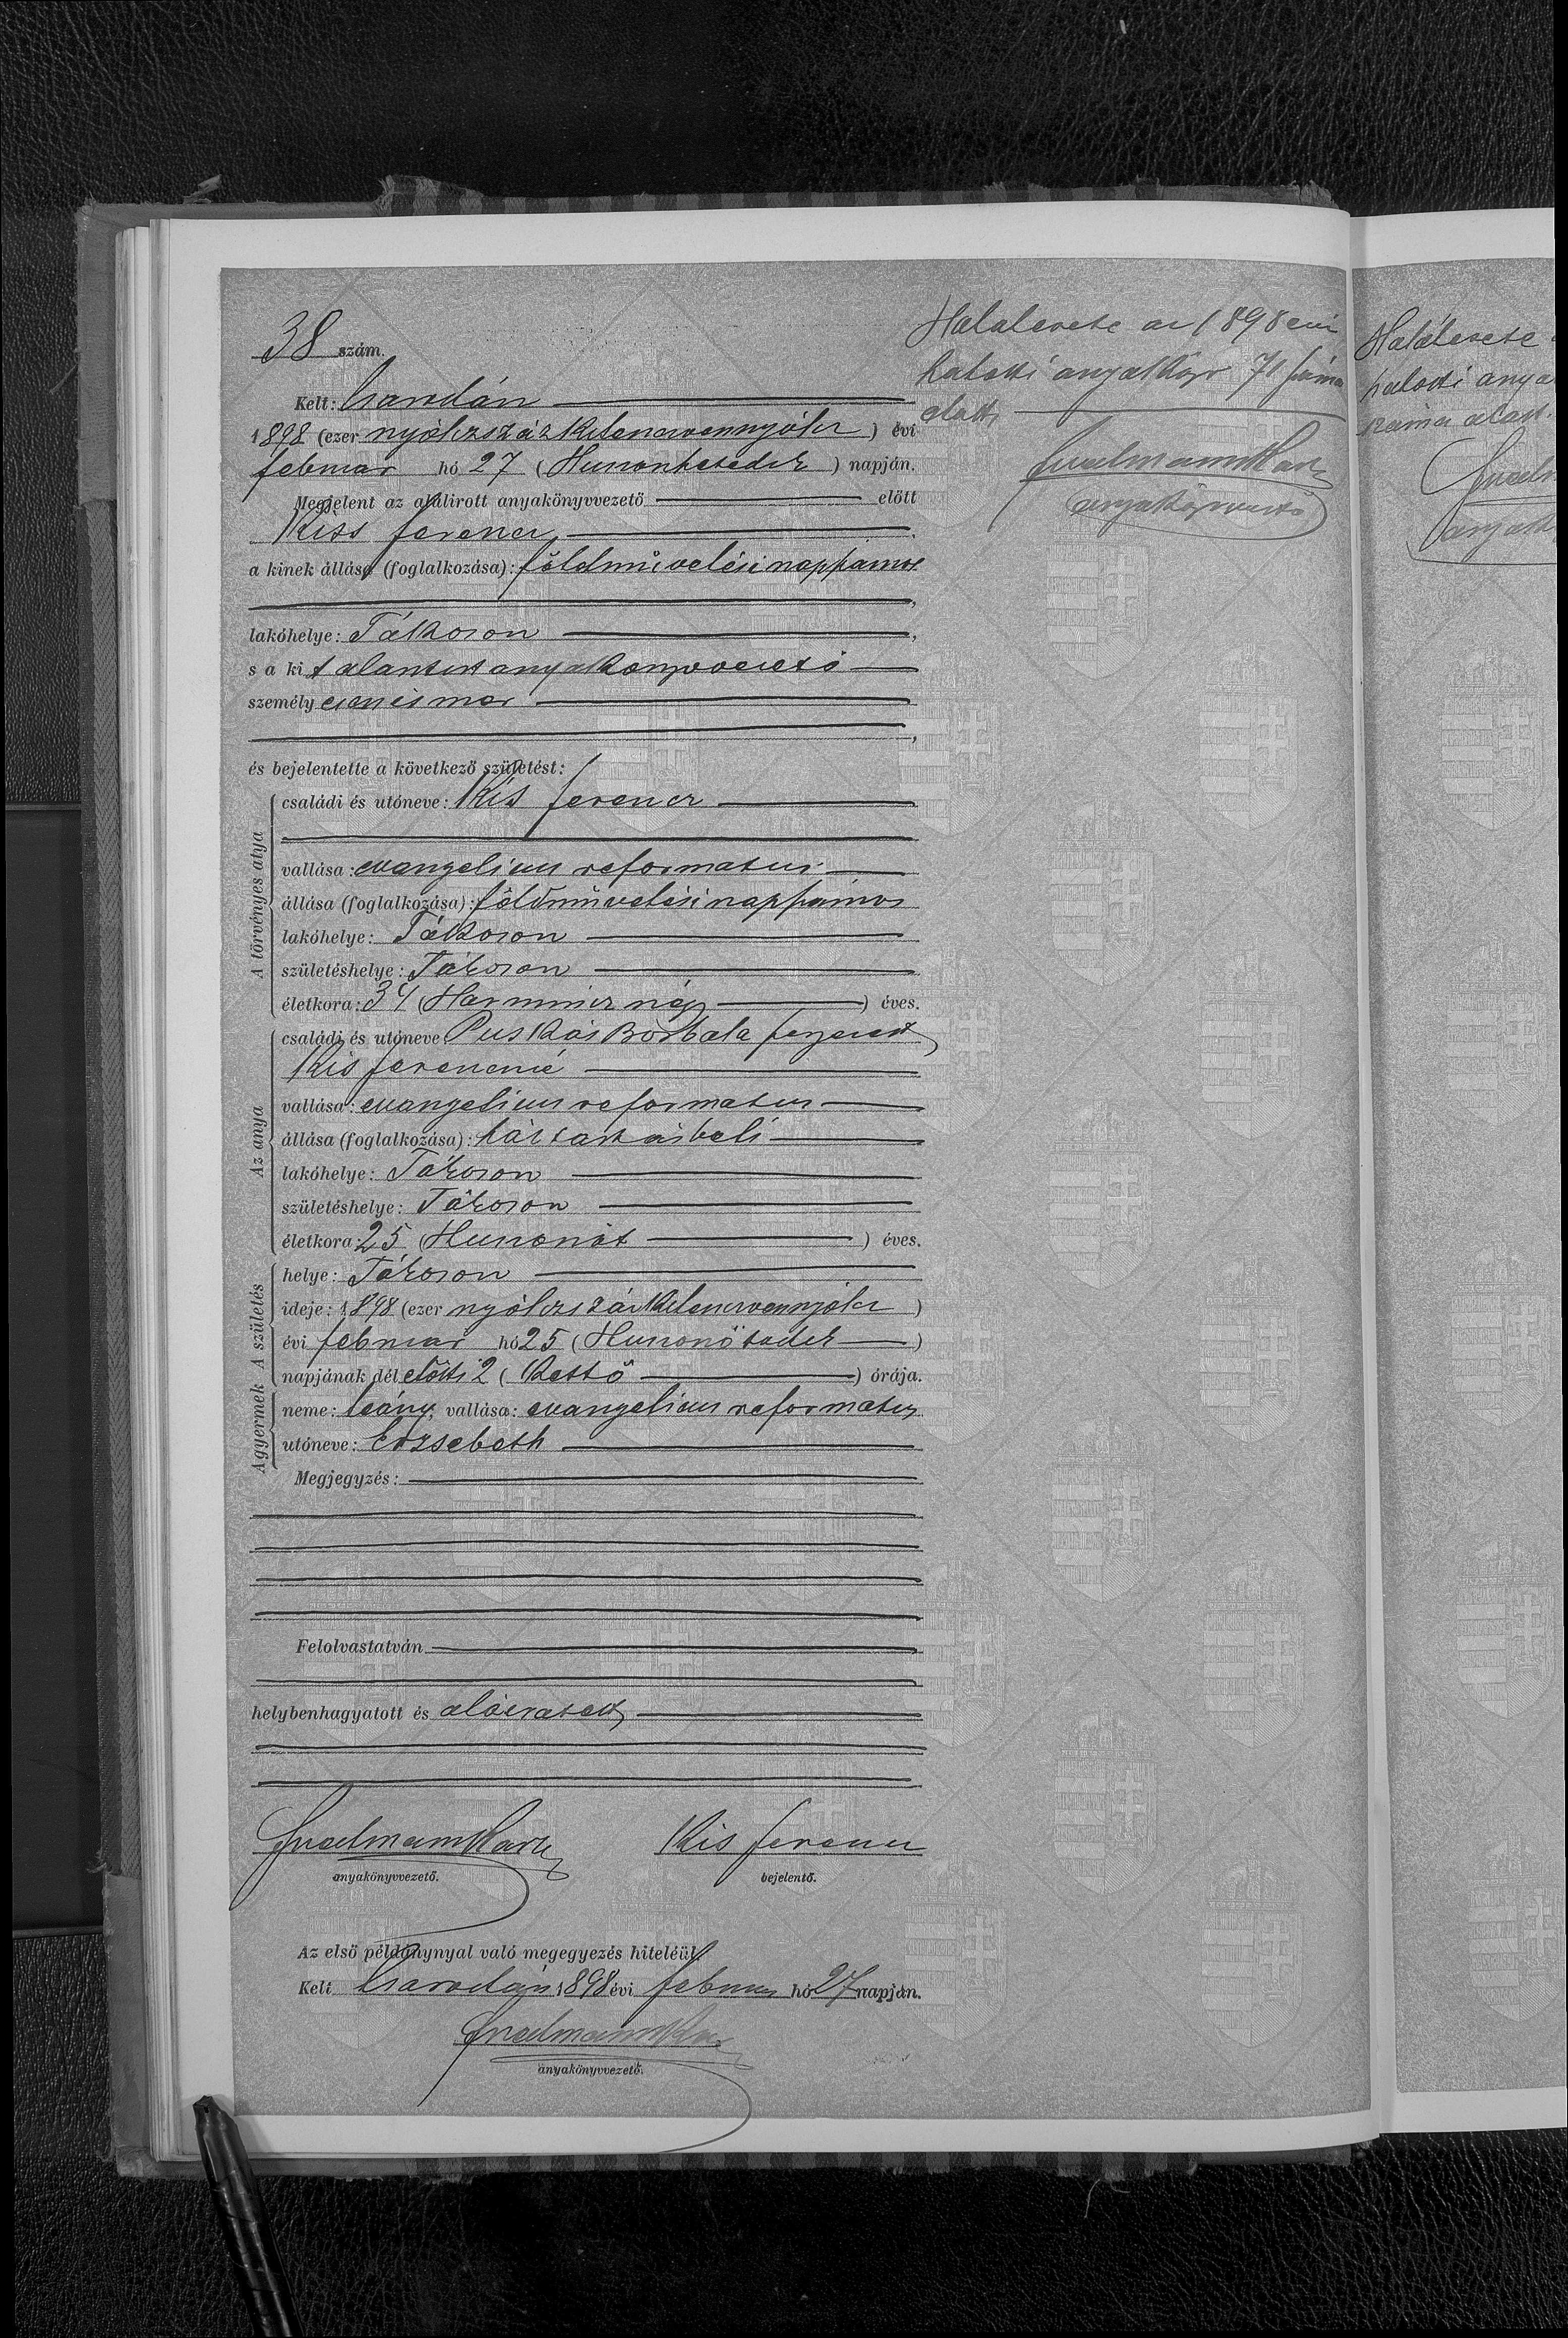 38 szám.
Kelt: Csarodán
1898 (ezer nyolczszázkilenczvennyolcz) évi
február hó 27 (Huszonhetedik) napján.
Megjelent az alulirott anyakönyvvezető előtt
Kiss Ferencz,
a kinek állása (foglalkozása): földmüvelési napszámos
lakóhelye: Tákoson,
s a kit alantirt anyakönyvvezető
személyesen ismer
és bejelentette a következő születést:
A törvényes atya
családi és utóneve: Kis Ferencz
vallása: evangelicus reformatus
állása (foglalkozása): földmüvelési napszámos
lakóhelye: Tákoson
születéshelye: Tákoson
életkora: 34 (Harmincz négy) éves.
Az anya
családi és utóneve Puskás Borbala ferjezett
Kis Ferenczné
vallása: evangelicus reformatus
állása (foglalkozása): háztartásbeli
lakóhelye: Tákoson
születéshelye: Tákoson
életkora: 25 (Huszonöt) éves.
A születés
helye: Tákoson
ideje: 1898 (ezer nyolczszázkilenczvennyolcz)
évi február hó 25 (Huszonötödik)
napjának dél előtti 2 (Kettő) órája.
A gyermek
neme: leány, vallása: evangelicus reformatus
utóneve: Erzsebeth
Megjegyzés:
Felolvastatván
helybenhagyatott és aláiratott
anyakönyvvezető.
Kis Ferencz
bejelentő.
Az első példánynyal való megegyezés hiteléül.
Kelt Csarodán 1898 évi február hó 27 napján.
anyakönyvvezető.
Halálesete az 1898 évi
halotti anyakönyv 71 száma
alatt
anyakönyvvezető
Halálesete
halotti anya
száma alatt